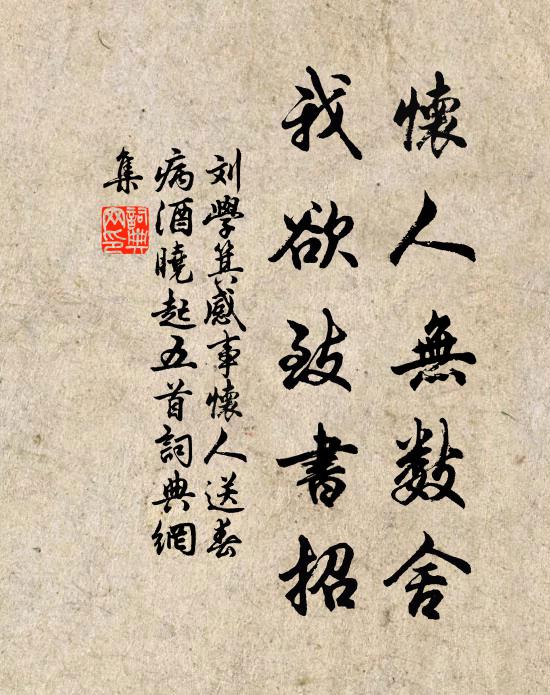 懷人無數舍
我欲致書招
刘學箕感事懷人送春
病酒曉起五首詞典網
集
詞典網印